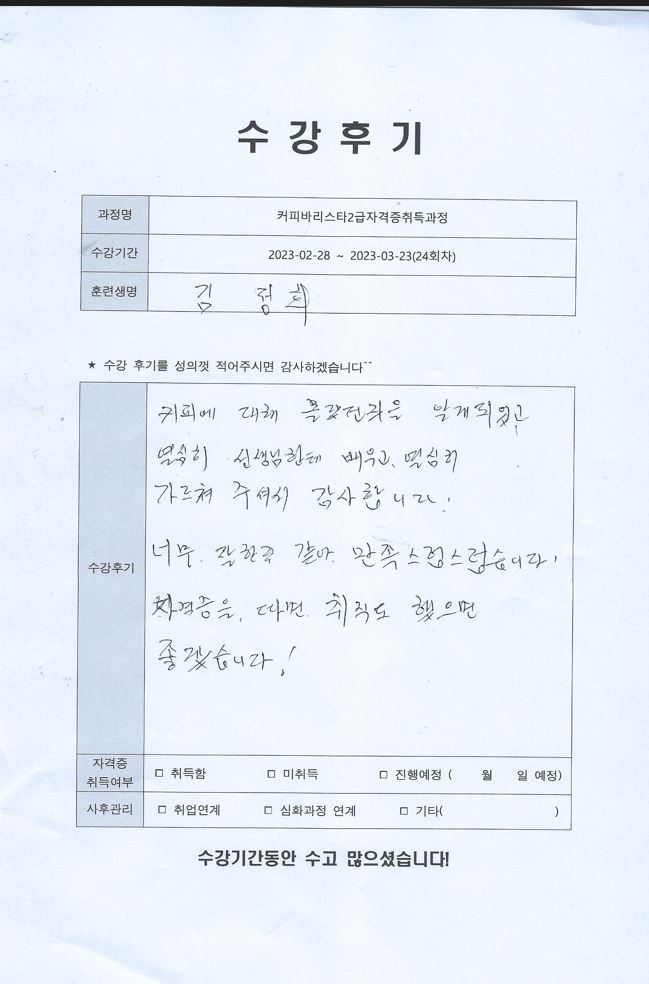 수강후기
과정명 커피바리스타2급자격증취득과정
수강기간 2023-02-28 ~ 2023-03-23(24회차)
훈련생명 김 정희
★ 수강 후기를 성의껏 적어주시면 감사하겠습니다^^
수강후기
커피에 대해 몰랐던것을 알게되었고
열심히 선생님한테 배우고, 열심히
가르쳐 주셔서 감사합니다!
너무 잘한것 같아 만족스럽습니다!
자격증을, 따면 취직도 했으면
좋겠습니다!
자격증 취득여부 □ 취득함 □ 미취득 □ 진행예정 ( 월 일 예정)
사후관리 □ 취업연계 □ 심화과정 연계 □ 기타( )
수강기간동안 수고 많으셨습니다!